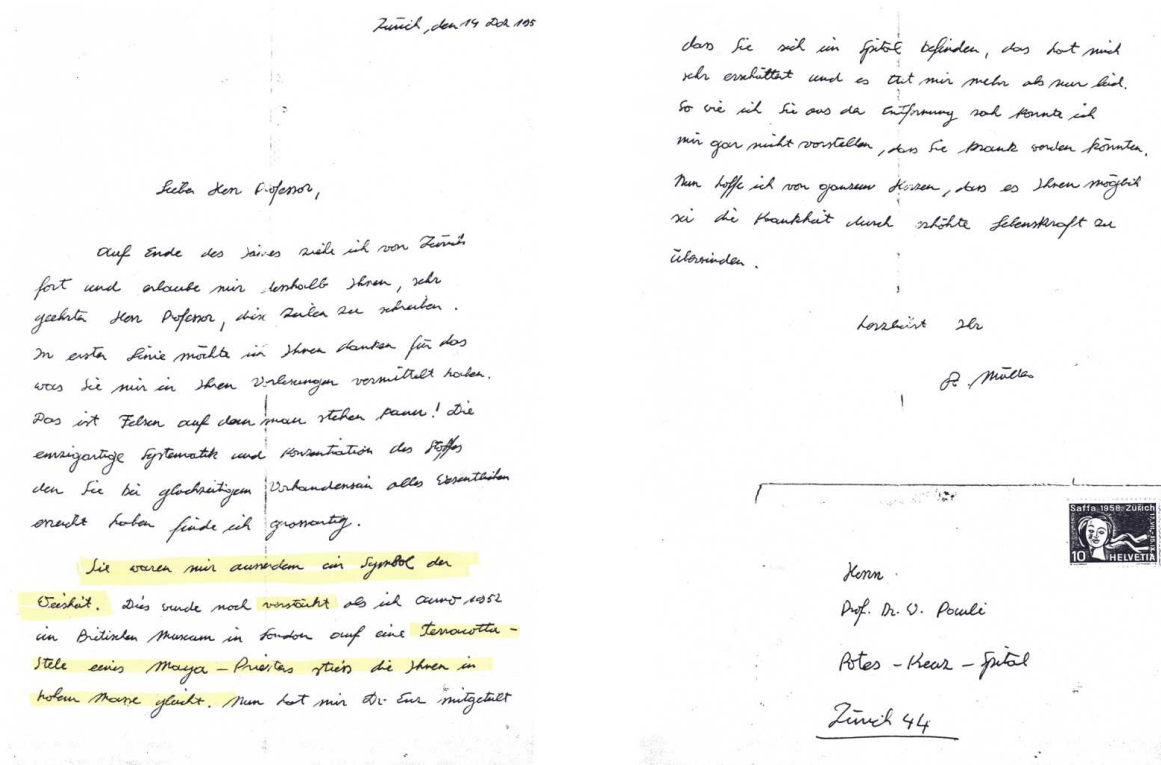 Zürich, den 14 Dez 195
Lieber Herr Professor,
Auf Ende des Jahres ziehe ich von Zürich
fort und erlaube mir deshalb Ihnen, sehr
geehrter Herr Professor, diese Zeilen zu schreiben.
In erster Linie möchte ich Ihnen danken für das
was Sie mir in Ihren Vorlesungen vermittelt haben.
Das ist Felsen auf dem man stehen kann! Die
einzigartige Systematik und Konzentration des Stoffes
den Sie bei gleichzeitigem Vorhandensein alles Wesentlichen
erreicht haben finde ich grossartig.
Sie waren mir ausserdem ein Symbol der
Weisheit. Dies wurde noch verstärkt als ich anno 1952
im Britischen Museum in London auf eine Terracotta-
Stele eines Maya-Priesters stiess die Ihnen in
hohem Masse gleicht. Nun hat mir Dr. Enz mitgeteilt
dass Sie sich im Spital befinden, das hat mich
sehr erschüttert und es tut mir mehr als nur leid.
So wie ich Sie aus der Entfernung sah konnte ich
mir gar nicht vorstellen, dass Sie krank werden könnten.
Nun hoffe ich von ganzem Herzen, dass es Ihnen möglich
sei die Krankheit durch erhöhte Lebenskraft zu
überwinden.
herzlichst Ihr
Müller
Saffa 1958 Zürich
10 HELVETIA
Herrn
Prof. Dr. W. Pauli
Rotes-Kreuz-Spital
Zürich 44